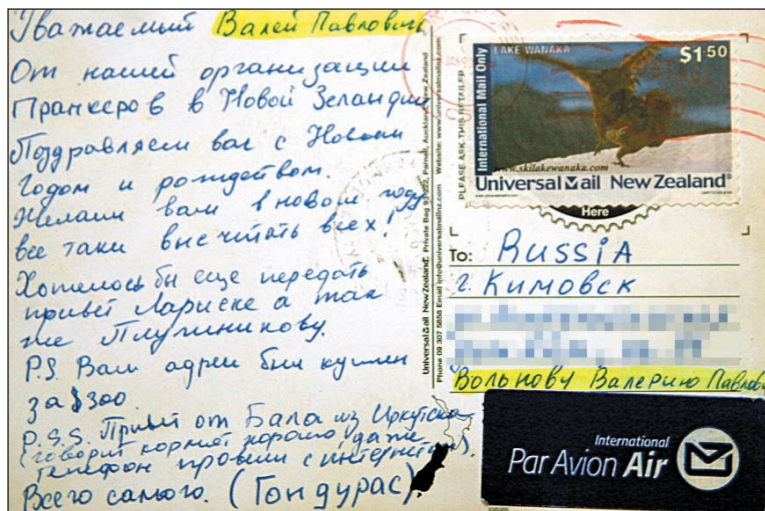 Уважаемый Валей Павлович
От нашей организации
Пранкеров в Новой Зеландии
Поздравляем вас с Новым
годом и рождеством.
Желаем вам в новом году
все таки вычитать всех!
Хотелось бы еще передать
привет Лариске а так
же Плулиникову.
P.S. Ваш адрес был куплен
за $300
P.S.S. Привет от Бала из Иркутска
(говорит кормят хорошо даже
телефон провели с интернетом).
Всего самого. (Гондурас)
UniversalMail New Zealand, Private Bag Parnell, Auckland, New Zealand
Phone 09 307 5858 Email info@universalmailnz.com Website: www.universalmailnz.com
PLEASE ASK THIS RETAILER
International Mail Only
LAKE WANAKA
$1.50
www.skilakewanaka.com
Universal Mail New Zealand
Here
To: RUSSIA
г. Кимовск
Вольнову Валерию Павлови
International
Par Avion Air